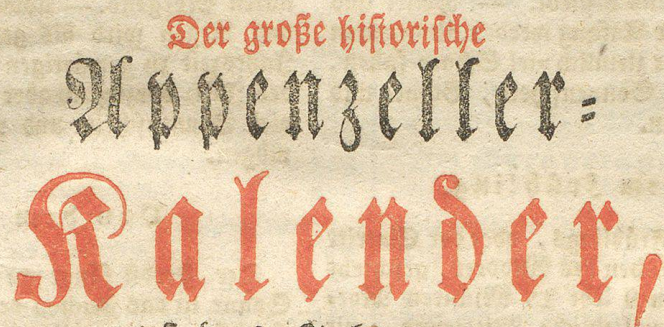 Der große hiſtoriſche
Appenzeller⸗
Kalender,